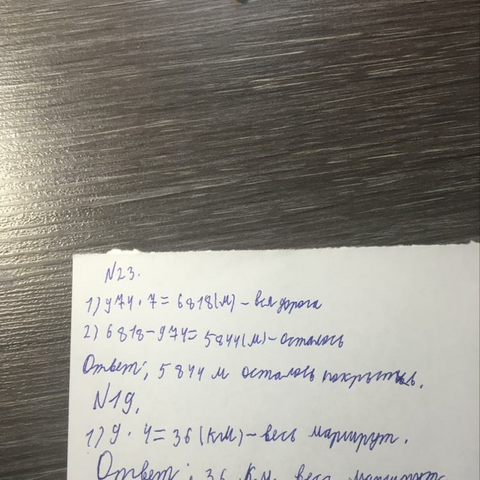 N23.
1) 974 · 7 = 6818 (м) - вся дорога
2) 6818 - 974 = 5844 (м) - осталось
Ответ: 5844 м осталось покрыть.
N19.
1) 9 · 4 = 36 (км) - весь маршрут.
Ответ: 36 км весь маршрут